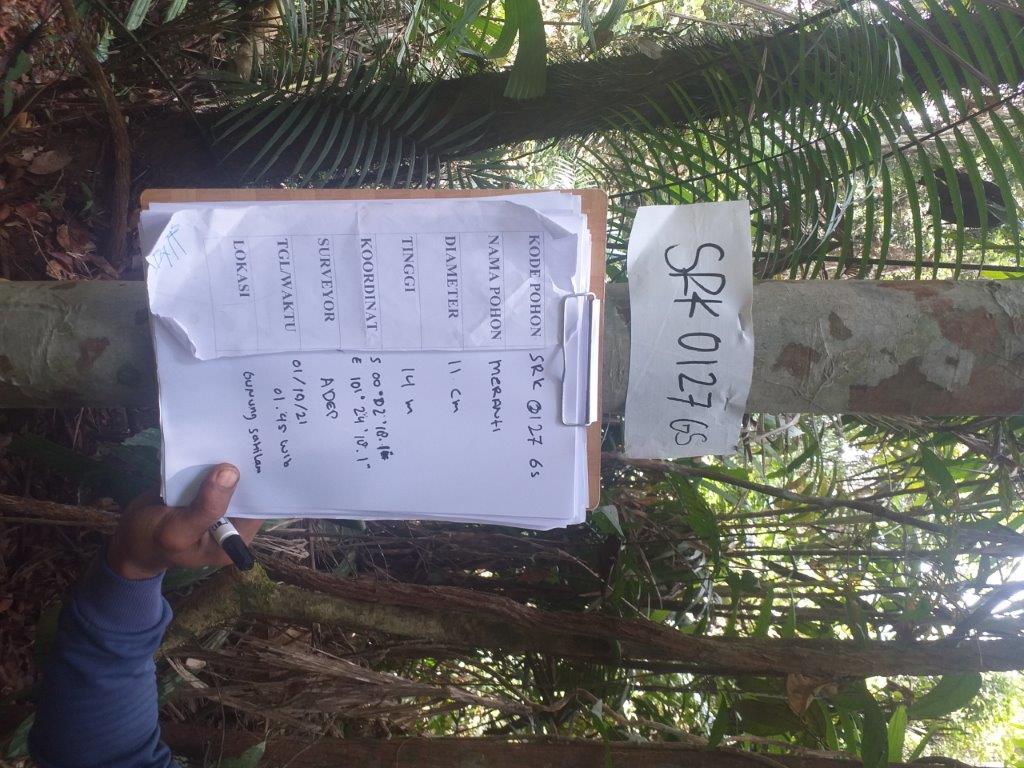 SRK 0127 GS
KODE POHON SRK 0127 GS
NAMA POHON MERANTI
DIAMETER 11 cm
TINGGI 14 m
KOORDINAT S 00°02'18.1"
E 101° 24' 18.1"
SURVEYOR ADEP
TGL/WAKTU 01/10/21
01.45 WIB
LOKASI GUNUNG SAHILAN